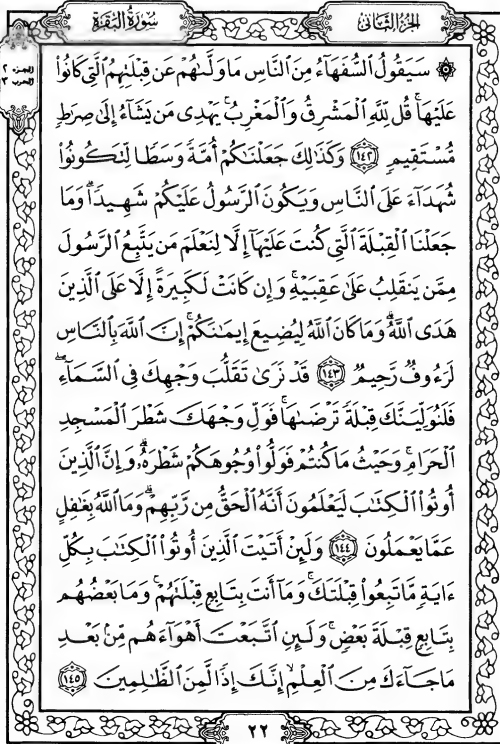 سُورَةُ البَقَرَةِ
الجُزْءُ الثَّانِي
الجزء ٢
الحزب ٣
۞ سَيَقُولُ ٱلسُّفَهَآءُ مِنَ ٱلنَّاسِ مَا وَلَّىٰهُمْ عَن قِبْلَتِهِمُ ٱلَّتِى كَانُوا۟
عَلَيْهَا ۚ قُل لِّلَّهِ ٱلْمَشْرِقُ وَٱلْمَغْرِبُ ۚ يَهْدِى مَن يَشَآءُ إِلَىٰ صِرَٰطٍ
مُّسْتَقِيمٍ ١٤٢ وَكَذَٰلِكَ جَعَلْنَٰكُمْ أُمَّةً وَسَطًا لِّتَكُونُوا۟
شُهَدَآءَ عَلَى ٱلنَّاسِ وَيَكُونَ ٱلرَّسُولُ عَلَيْكُمْ شَهِيدًا ۗ وَمَا
جَعَلْنَا ٱلْقِبْلَةَ ٱلَّتِى كُنتَ عَلَيْهَآ إِلَّا لِنَعْلَمَ مَن يَتَّبِعُ ٱلرَّسُولَ
مِمَّن يَنقَلِبُ عَلَىٰ عَقِبَيْهِ ۚ وَإِن كَانَتْ لَكَبِيرَةً إِلَّا عَلَى ٱلَّذِينَ
هَدَى ٱللَّهُ ۗ وَمَا كَانَ ٱللَّهُ لِيُضِيعَ إِيمَٰنَكُمْ ۚ إِنَّ ٱللَّهَ بِٱلنَّاسِ
لَرَءُوفٌ رَّحِيمٌ ١٤٣ قَدْ نَرَىٰ تَقَلُّبَ وَجْهِكَ فِى ٱلسَّمَآءِ ۖ
فَلَنُوَلِّيَنَّكَ قِبْلَةً تَرْضَىٰهَا ۚ فَوَلِّ وَجْهَكَ شَطْرَ ٱلْمَسْجِدِ
ٱلْحَرَامِ ۚ وَحَيْثُ مَا كُنتُمْ فَوَلُّوا۟ وُجُوهَكُمْ شَطْرَهُۥ ۗ وَإِنَّ ٱلَّذِينَ
أُوتُوا۟ ٱلْكِتَٰبَ لَيَعْلَمُونَ أَنَّهُ ٱلْحَقُّ مِن رَّبِّهِمْ ۗ وَمَا ٱللَّهُ بِغَٰفِلٍ
عَمَّا يَعْمَلُونَ ١٤٤ وَلَئِنْ أَتَيْتَ ٱلَّذِينَ أُوتُوا۟ ٱلْكِتَٰبَ بِكُلِّ
ءَايَةٍ مَّا تَبِعُوا۟ قِبْلَتَكَ ۚ وَمَآ أَنتَ بِتَابِعٍ قِبْلَتَهُمْ ۚ وَمَا بَعْضُهُم
بِتَابِعٍ قِبْلَةَ بَعْضٍ ۚ وَلَئِنِ ٱتَّبَعْتَ أَهْوَآءَهُم مِّنۢ بَعْدِ
مَا جَآءَكَ مِنَ ٱلْعِلْمِ ۙ إِنَّكَ إِذًا لَّمِنَ ٱلظَّٰلِمِينَ ١٤٥
٢٢